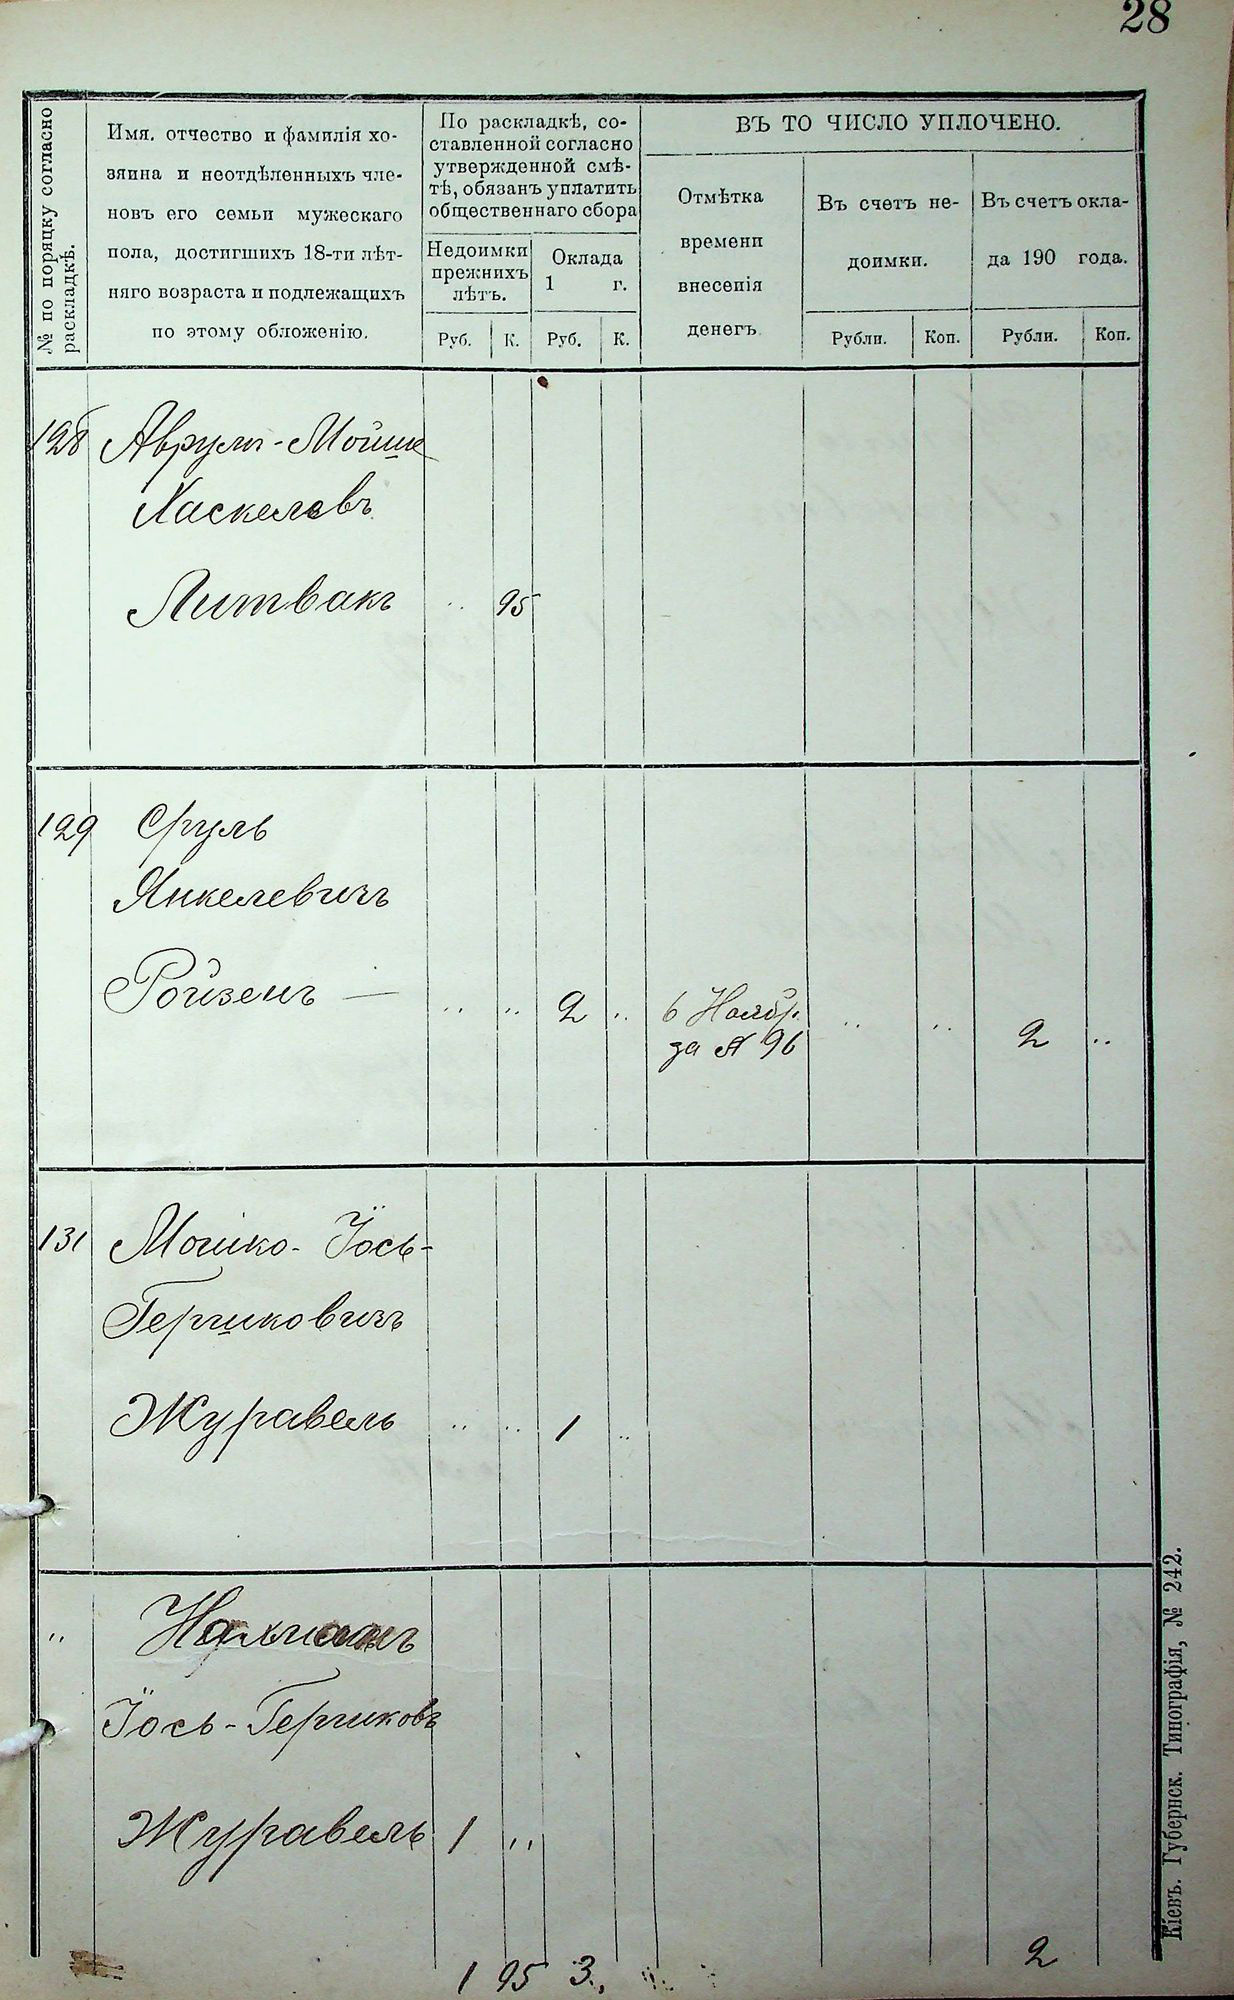 28
№ по поряцку согласно
раскладкѣ.
Имя. отчество и фамилія хо-
зяина и неотдѣленныхъ чле-
новъ его семьи мужескаго
пола, достигшихъ 18-ти лѣт-
няго возраста и подлежащихъ
по этому обложенію.
По раскладкѣ, со-
ставленной согласно
утвержденной смѣ-
тѣ, обязанъ уплатить
общественнаго сбора
Недоимки
прежнихъ
лѣтъ.
Оклада
1 г.
Руб. К. Руб. К.
ВЪ ТО ЧИСЛО УПЛОЧЕНО.
Отмѣтка
времени
внесенія
денегъ
Въ счетъ не-
доимки.
Въ счетъ окла-
да 190 года.
Рубли. Коп. Рубли. Коп.
128 Аврумъ-Мойше
Хаскелевъ
Литвакъ .. 95
129 Сруль
Янкелевичъ
Ройзенъ — .. .. 2 .. 6 Ноябр. .. .. 2 ..
за № 96
131 Мошко-Іось-
Гершковичъ
Журавель .. .. 1 ..
,, Нахманъ
Іось-Гершковъ
Журавель 1 ,,
1 95 3 2
Кіевъ. Губернск. Типографія, № 242.